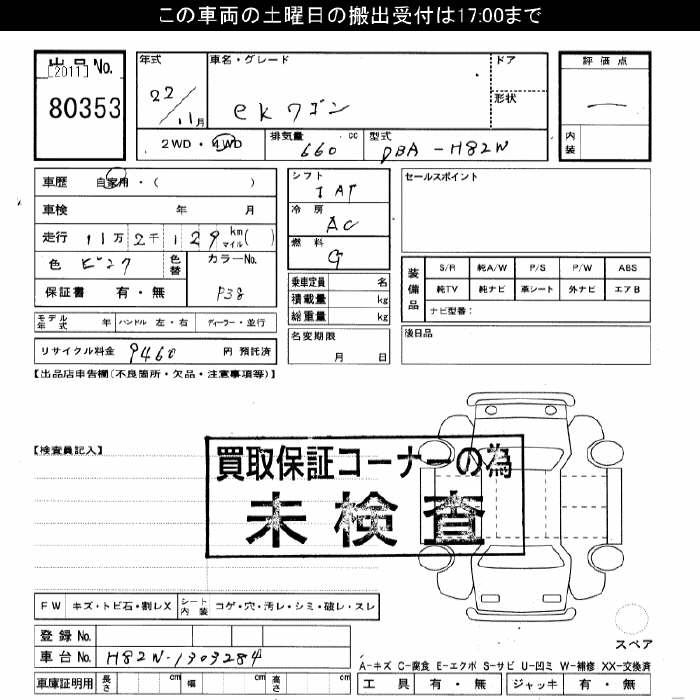 この車両の土曜日の搬出受付は17:00まで
出品No.
[2011]
80353
年式
22/11月
車名・グレード
ekワゴン
ドア
形状
評価点
—
内装
2WD・4WD
排気量 660 cc
型式 DBA-H82W
車歴 自家用・( )
車検 年 月
走行 11万2千129 km マイル( )
色 ピンク
色替
カラーNo. P38
保証書 有・無
シフト
IAT
冷房
AC
燃料
G
乗車定員 名
積載量 kg
総重量 kg
セールスポイント
装備品
S/R 純A/W P/S P/W ABS
純TV 純ナビ 革シート 外ナビ エアB
ナビ型番:
モデル年式 年 ハンドル 左・右 ディーラー・並行
名変期限
月 日
後日品
リサイクル料金 9460 円 預託済
【出品店申告欄(不良箇所・欠品・注意事項等)】
【検査員記入】
買取保証コーナーの為
未検査
FW キズ・トビ石・割レX シート内装 コゲ・穴・汚レ・シミ・破レ・スレ
スペア
登録No.
車台No. H82W-1303284
A-キズ C-腐食 E-エクボ S-サビ U-凹ミ W-補修 XX-交換済
車庫証明用 長さ cm 幅 cm 高さ cm
工具 有・無 ジャッキ 有・無